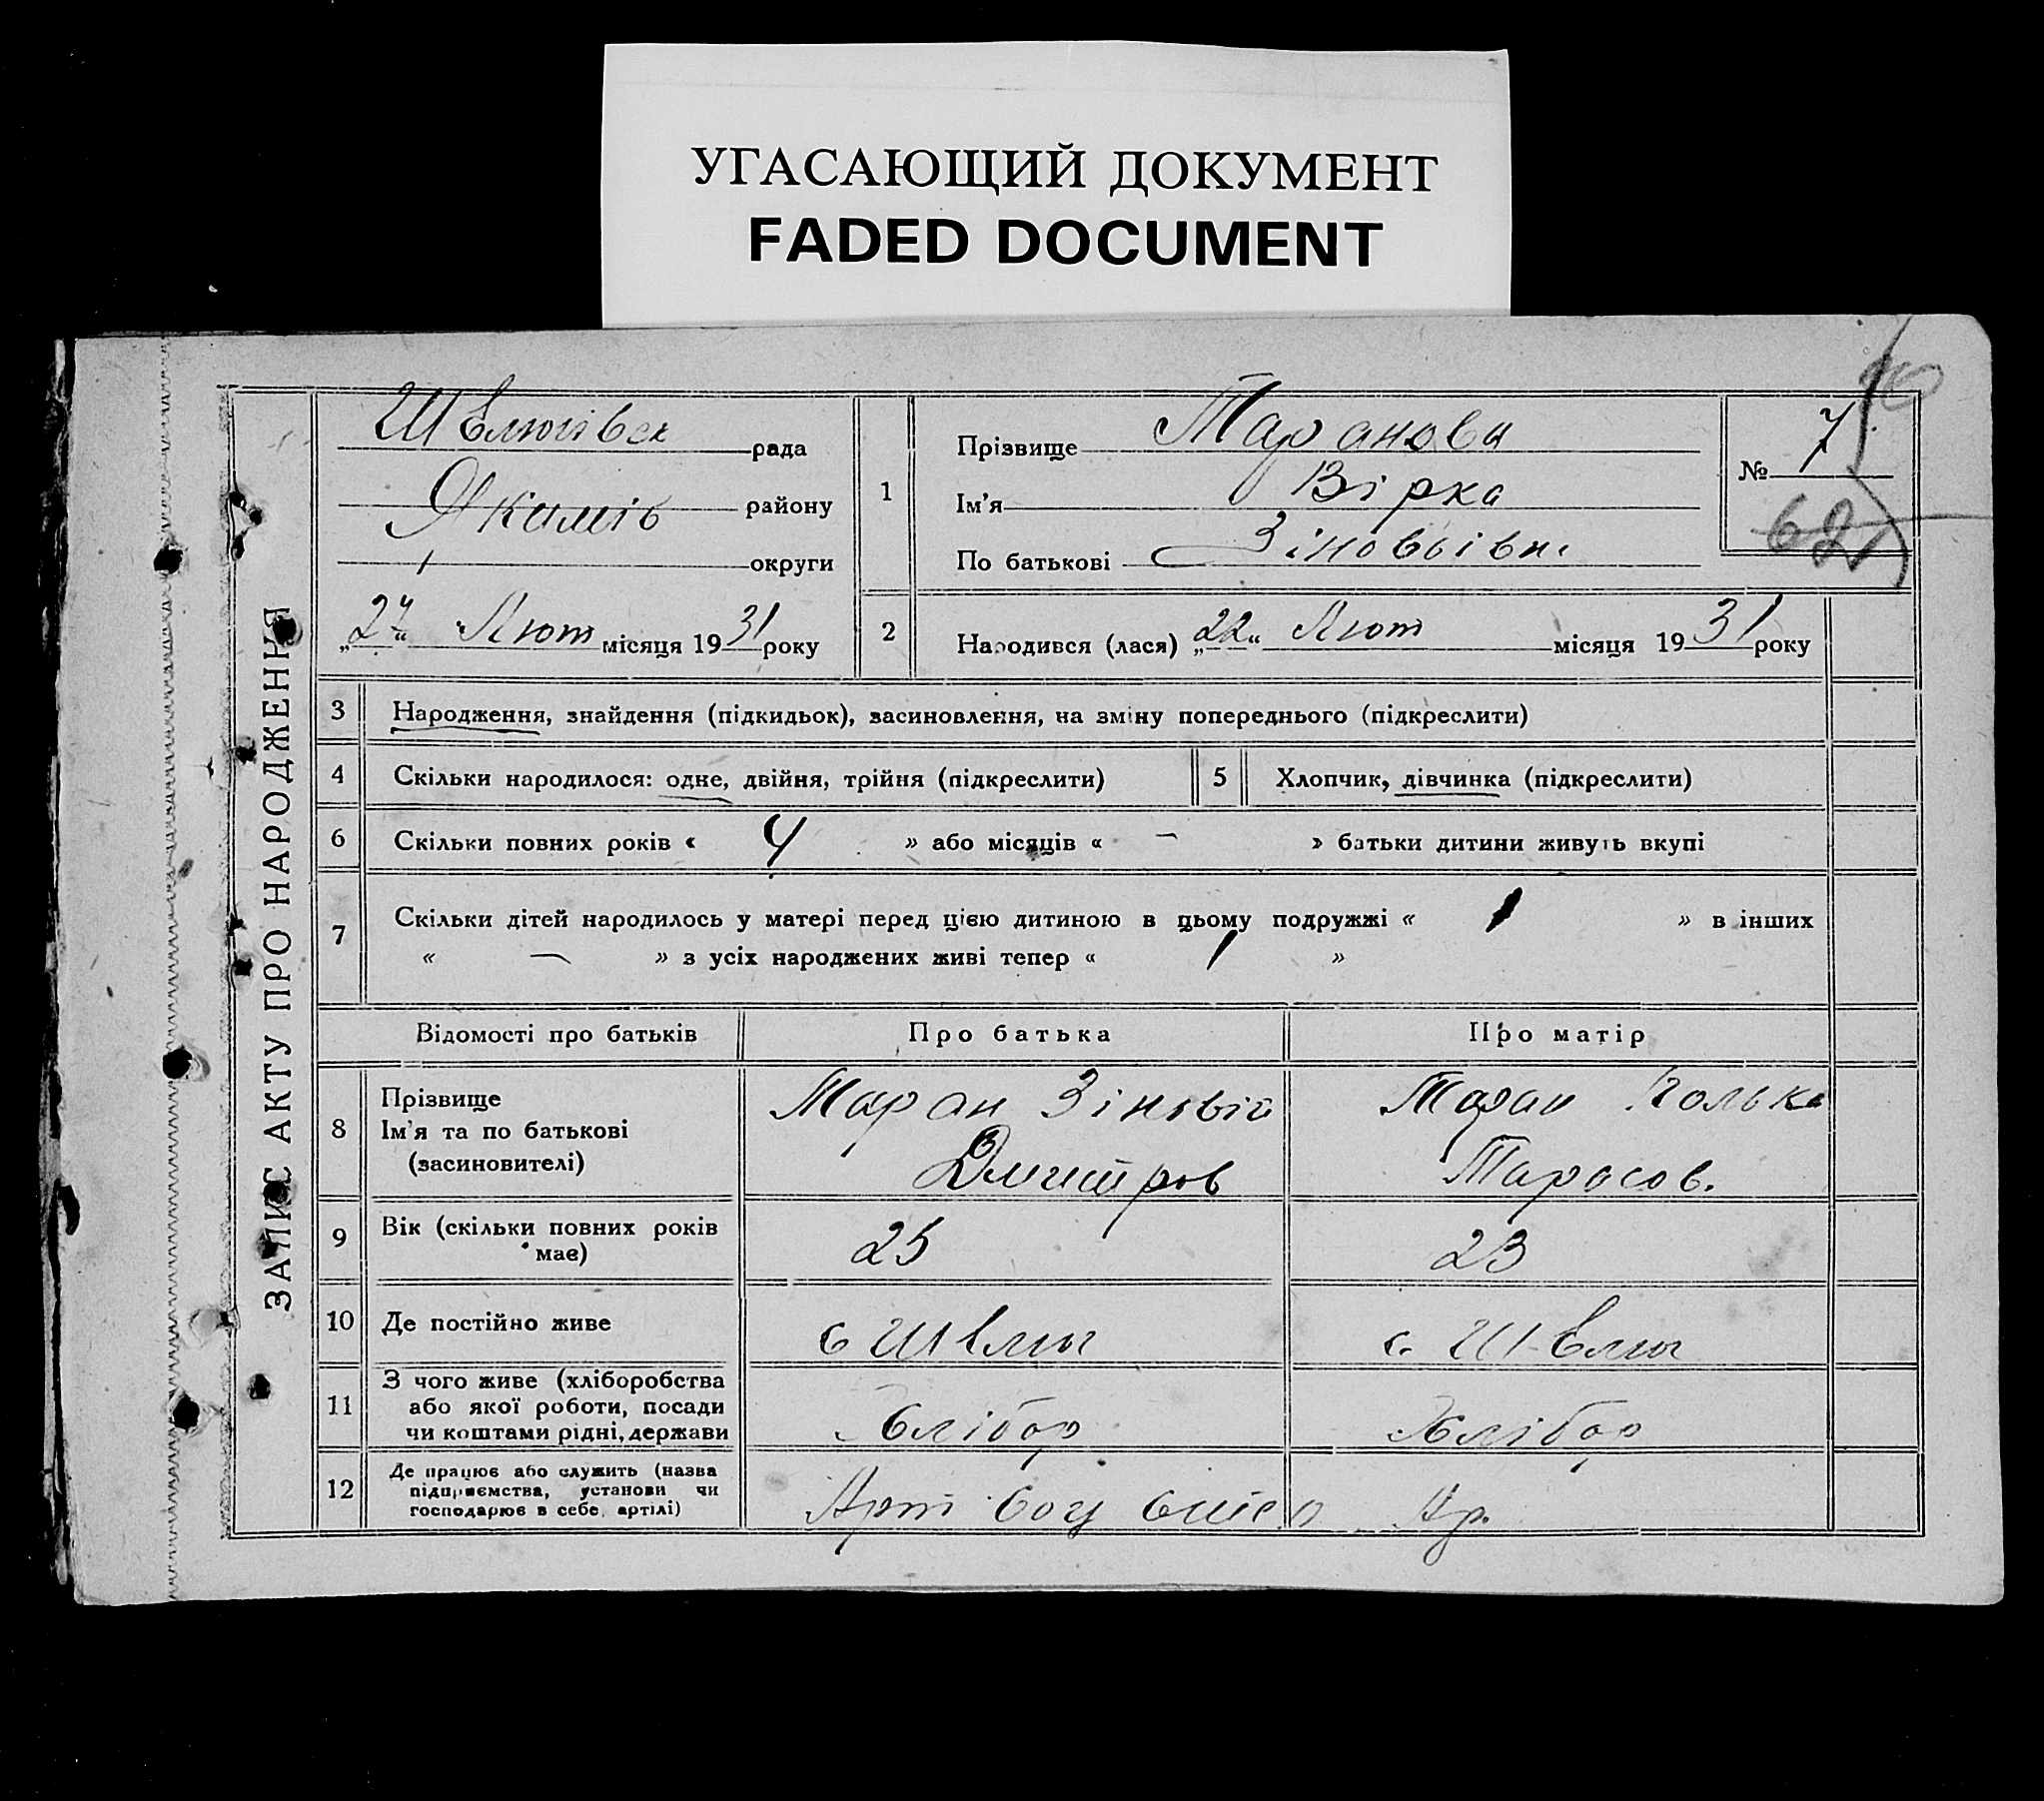 УГАСАЮЩИЙ ДОКУМЕНТ
FADED DOCUMENT
ЗАПИС АКТУ ПРО НАРОДЖЕННЯ
рада
Якимів району
округи
„27“ Лют місяця 1931 року
1
Прізвище Таранова
Ім'я Вірка
По батькові Зіновьівн.
№ 7
62
2
Народився (лася) „22“ Лют місяця 1931 року
3 Народження, знайдення (підкидьок), засиновлення, на зміну попереднього (підкреслити)
4 Скільки народилося: одне, двійня, трійня (підкреслити)
5 Хлопчик, дівчинка (підкреслити)
6 Скільки повних років « 4 » або місяців « — » батьки дитини живуть вкупі
7 Скільки дітей народилось у матері перед цією дитиною в цьому подружжі « 1 » в інших
« — » з усіх народжених живі тепер « 1 »
Відомості про батьків
Про батька
Про матір
8
Прізвище
Ім'я та по батькові
(засиновителі)
Таран Зіновій
Дмитров
Таран
Тарасов.
9
Вік (скільки повних років
має)
25
23
10 Де постійно живе
с
с.
11
З чого живе (хліборобства
або якої роботи, посади
чи коштами рідні, держави
Хлібор
Хлібор
12
Де працює або служить (назва
підприємства, установи чи
господарює в себе, артілі)
Арт
Ар.